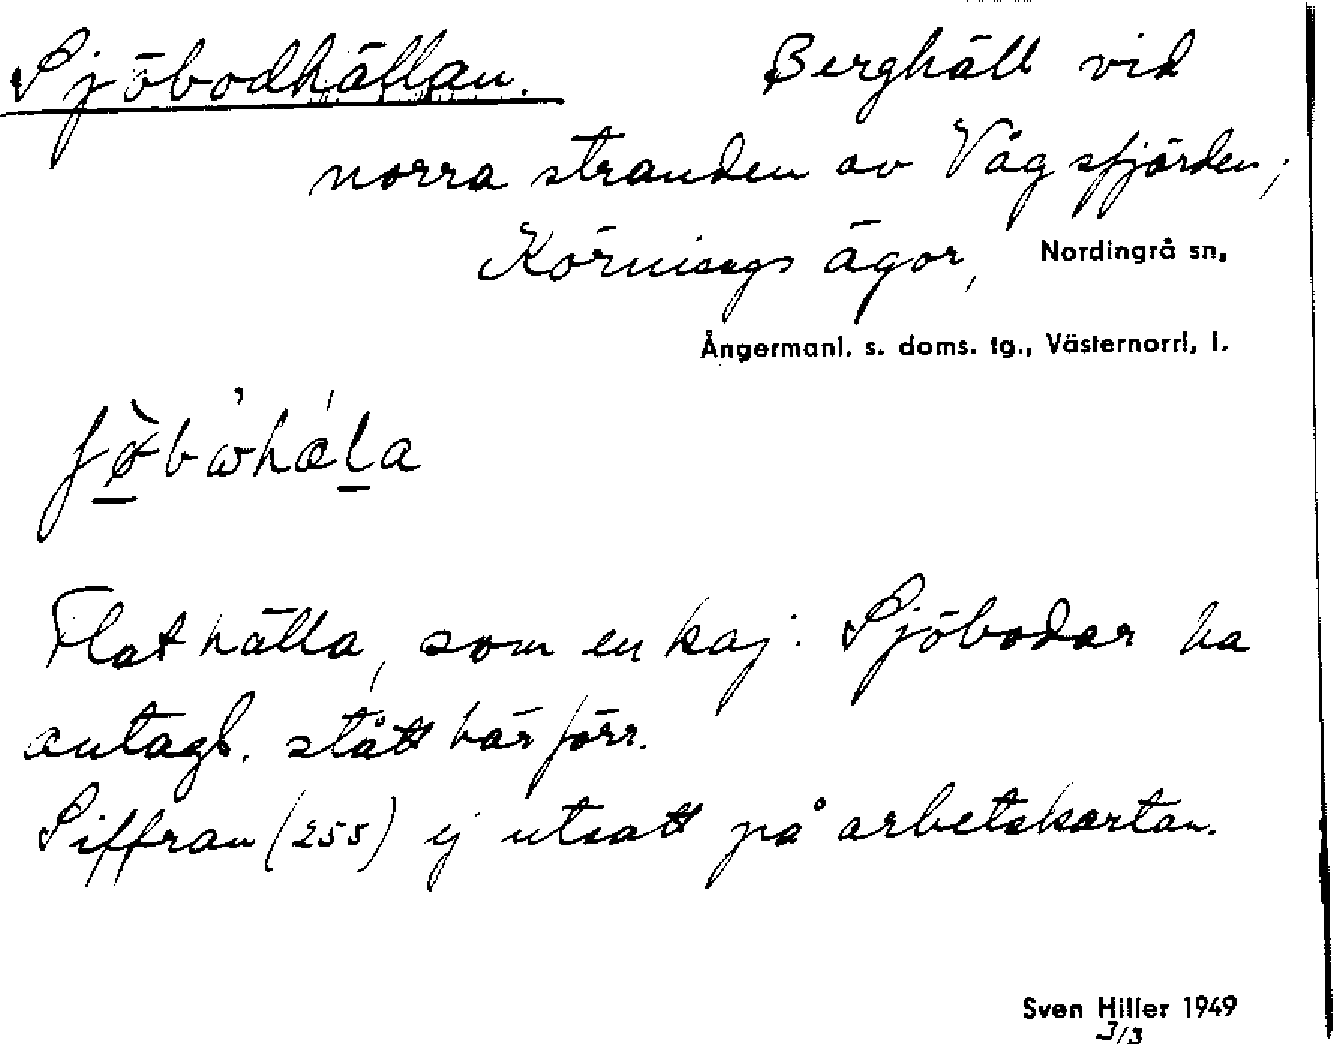 Sjöbodhällan. Berghäll vid
norra stranden av Vågsfjärden;
Körnings ägor, Nordingrå sn,
Ångermanl. s. doms. tg., Västernorrl. l.
Flat hälla, som en kaj. Sjöbodar ha
antagl. stått här förr.
Siffran (255) ej utsatt på arbetskartan.
Sven Hiller 1949
3/3